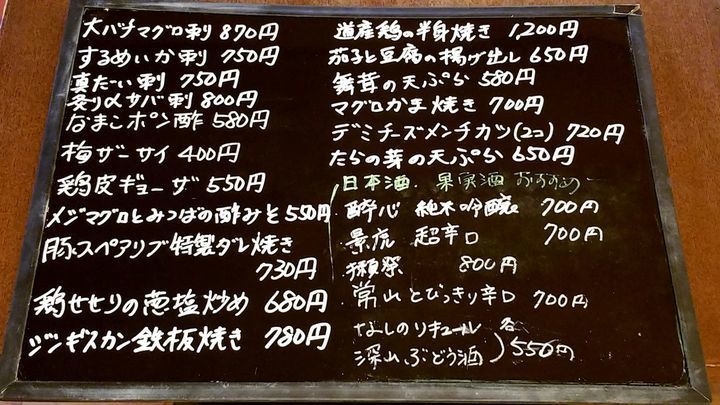 大バチマグロ刺 870円
するめいか刺 750円
真たい刺 750円
炙り〆サバ刺 800円
なまこポン酢 580円
梅ザーサイ 400円
鶏皮ギョーザ 550円
メジマグロとみつばの酢みそ 550円
豚スペアリブ特製ダレ焼き
730円
鶏せせりの葱塩炒め 680円
ジンギスカン鉄板焼き 780円
道産鶏の半身焼き 1,200円
茄子と豆腐の揚げ出し 650円
舞茸の天ぷら 580円
マグロかま焼き 700円
デミチーズメンチカツ(2コ) 720円
たらの芽の天ぷら 650円
日本酒、果実酒 おすすめ
酔心 純米吟醸 700円
景虎 超辛口 700円
獺祭 800円
常山とびっきり辛口 700円
なしのリキュール 各
深山ぶどう酒 550円